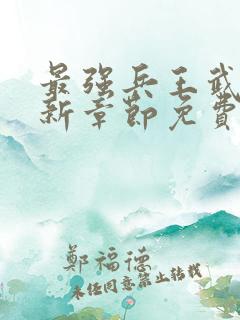 最强兵王武
新章節免費
鄭福德
未经同意禁止转载